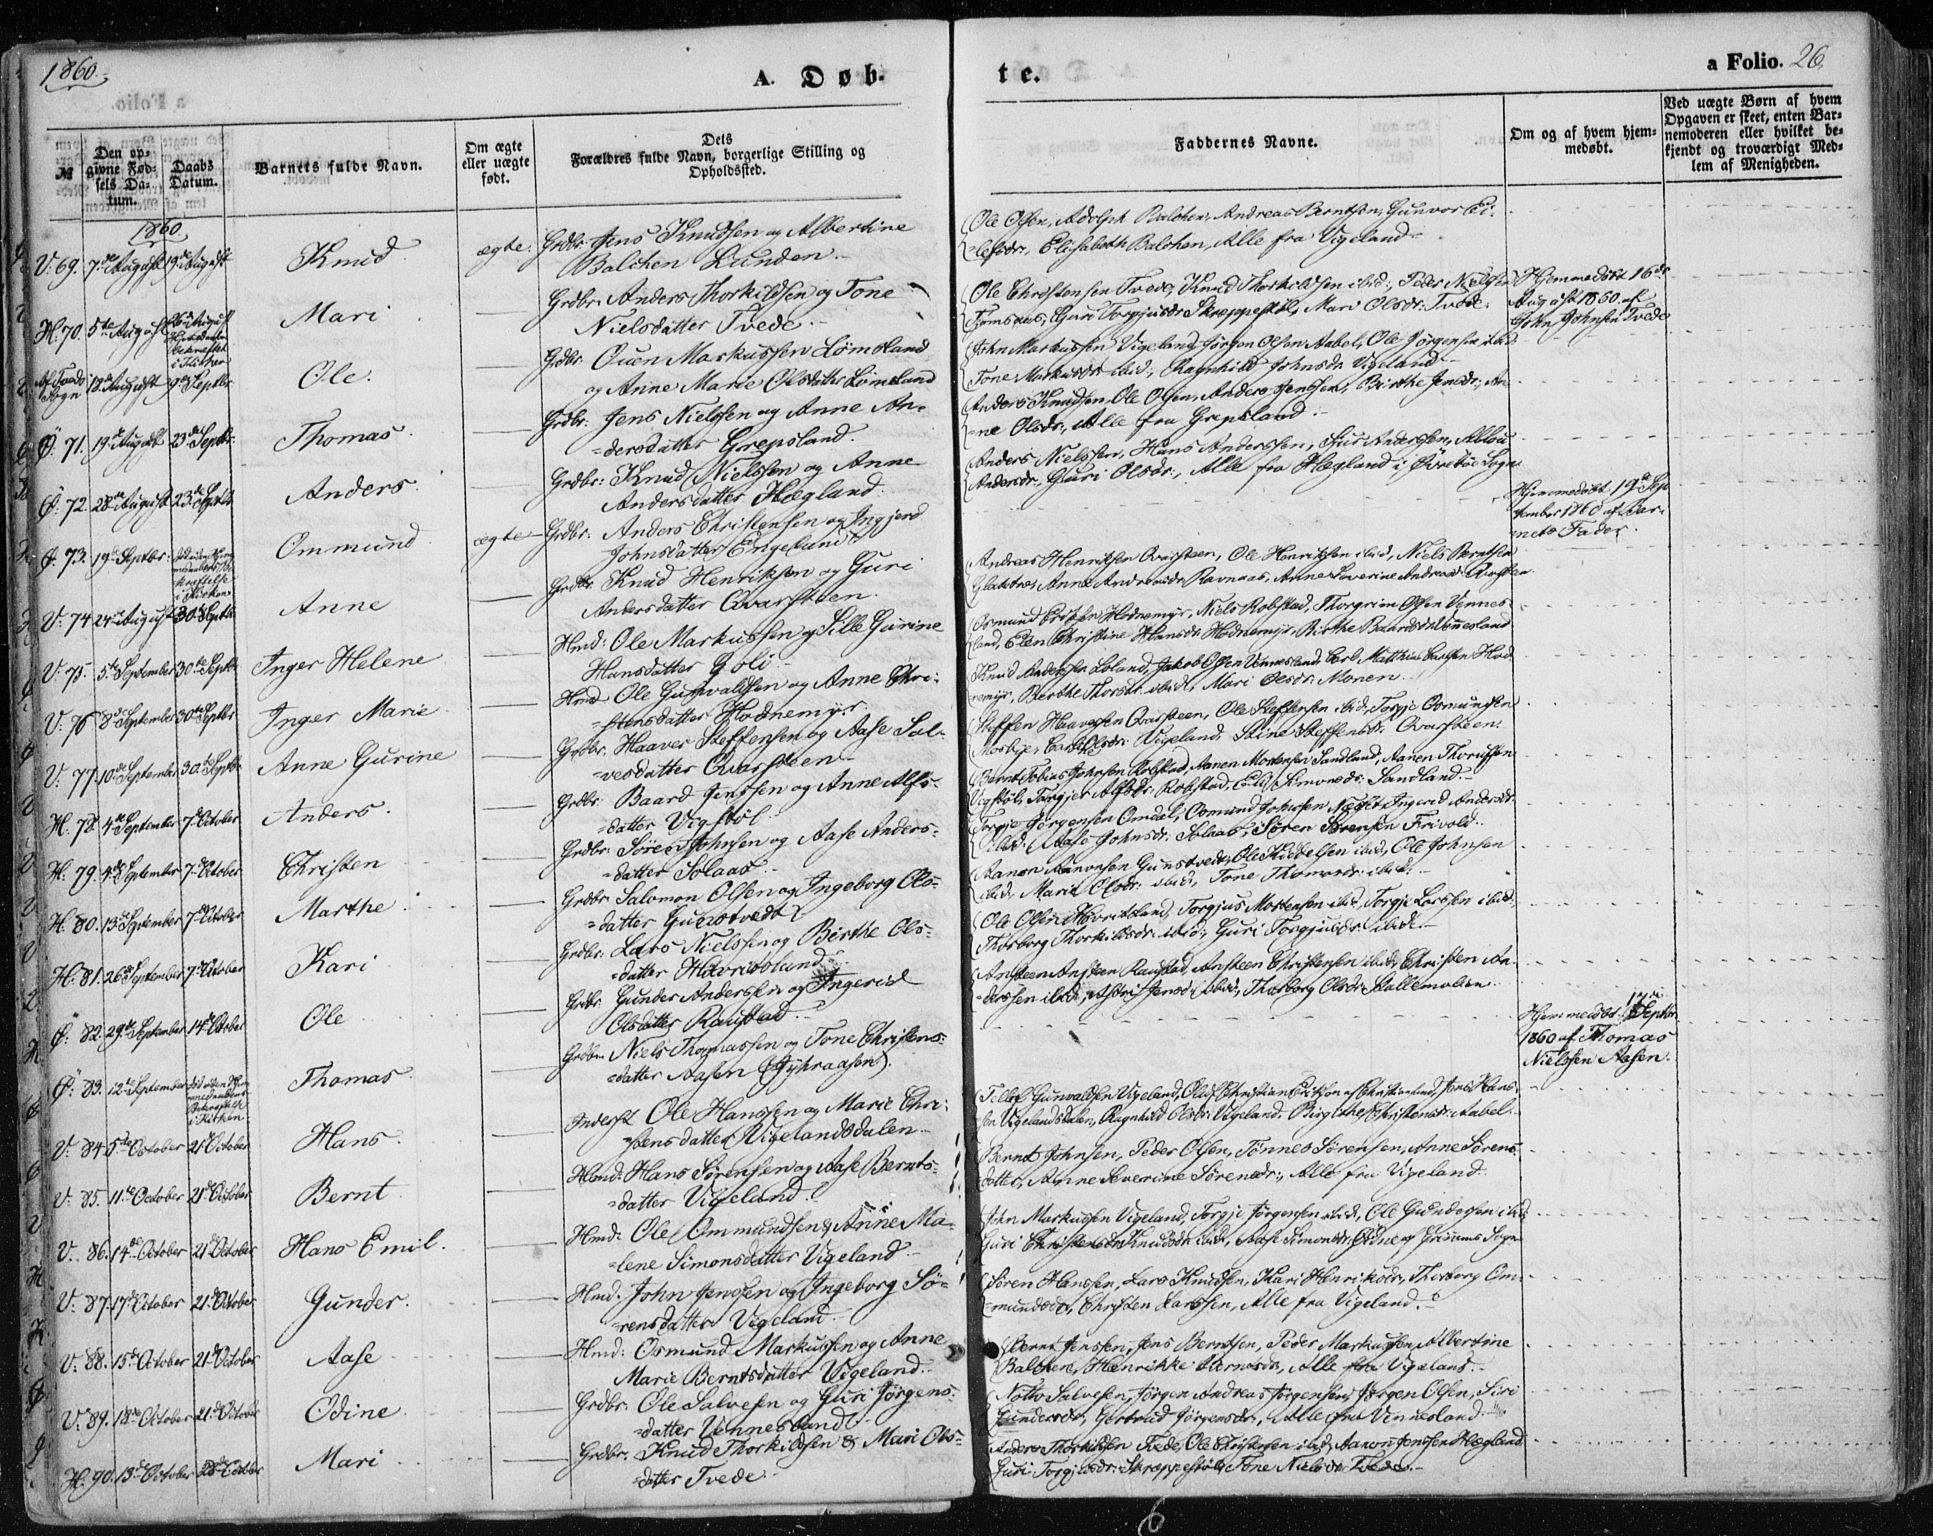 1860.
A. Døb-
te.
a Folio. 26
№
Den op-
givne Fød-
sels Da-
tum.
Daabs
Datum.
Barnets fulde Navn.
Om ægte
eller uægte
født.
Dets
Forældres fulde Navn, borgerlige Stilling og
Opholdssted.
Faddernes Navne.
Om og af hvem hjem-
medøbt.
Ved uægte Børn af hvem
Opgaven er skeet, enten Bar-
nemoderen eller hvilket be-
kjendt og troværdigt Med-
lem af Menigheden.
1860
V. 69. 7de August 19de August Knud ægte. Grdbr. Jens Knudsen og Albertine
Balchen Lunden.
Ole Olsen, Adolph Balchen, Andreas Berntsen, Gunvor Ei-
=lefsdr., Elisabeth Balchen, Alle fra Vigeland
H. 70. 5te August 26de August Mari Grdbr. Anders Thorkildsen og Tone
Nielsdatter Tvede.
Ole Christensen Tvede, Knud Thorkildsen ibid., Peder Nielsen
Guri Torgjusdr. Skræppestøl, Mari Olsdr. Tvede.
Hjemmedøbt 16de
August 1860 af
John Johnsen Tvede
Af Tveds
Sogn 12de August 9de Septbr. Ole. Grdbr. Ouen Markussen Lømsland
og Anne Marie Olsdatter Lømsland
John Markussen Vigeland, Jørgen Olsen Aabel, Ole Jørgensen ibid.
Tone Markusdr. ibid., Ragnhild Johnsdr. Vigeland
Ø. 71. 19de August 23de Septbr. Thomas. Grdbr. Jens Nielssen og Anne An-
=dersdatter Grepsland.
Anders Knudsen, Ole Olsen, Anders Jenssen, Birthe Jensdr., An-
=ne Olsdr., Alle fra Grepsland.
Ø. 72. 28de August 23de Septbr. Anders. Grdbr. Knud Nielssen og Anne
Andersdatter Hægland.
Anders Nielssen, Hans Anderssen, Siur Anderssen,
Andersdr., Guri Olsdr., Alle fra Hægland i Øvrebøe Sogn
Ø. 73. 19de Septbr. Ommund ægte Grdbr. Anders Christensen og Ingjerd
Johnsdatter Engeland
Hjemmedøbt 19de Sep-
tember 1860 af Bar-
nets Fader.
V. 74 24de August 30de Septbr. Anne Grdbr. Knud Henriksen og Guri
Andersdatter Qvarsteen.
Andreas Henriksen Qvarsteen, Ole Henriksen ibid., Niels Berntsen
Anne Andreasdr. Ravnaas, Anne Severine Andreasdr. Qvarsteen
V. 75. 5te September 30te Septbr. Inger Helene Hmd. Ole Markussen og Sille Gurine
Hansdatter Goli
Osmund Hodnemyr, Niels Robstad, Thorgrim Olsen Vennes-
land, Elen Christine Hansdr. Hodnemyr, Birthe Baardsdr. Vennesland
V. 76 8de September 30te Septbr. Inger Marie Hmd. Ole Gunvaldsen og Anne Chri-
=stensdatter Hodnemyr
Knud Anderssen Loland, Jakob Olsen Vennesland, Carl Matthias Carlsen Hod-
nemyr, Berthe Thorsdr. ibid., Mari Olsdr. Monen
V. 77. 10de September 30te Septbr. Anne Gurine Grdbr. Haaver Steffensen og Aase Sal-
=vesdatter Qvarsteen
Steffen Haaversen Qvarsteen, Ole Steffensen ibid., Torgje Osmundsen
Moseje, Vigeland, Stine Steffensdr. Qvarsteen.
H. 78. 4de September 7de October Anders. Grdbr. Baard Jenssen og Anne Alfs-
=datter Vigstøl
Bernt Tobias Johnsen Robstad, Aanen Mortensen Sandland, Aanen
Vigstøl, Torgjer Alfsdr. Robstad, Sandland.
H. 79. 4de September 7de October Christen Grdbr. Søren Johnsen og Aase Anders-
=datter Solaas.
Torgje Jørgensen Omdal, Osmund Johnsen Ingerid Andersdr.
ibid., Aase Johnsdr. Solaas, Søren Sørensen Frivold.
H. 80. 13de September 7de October Marthe Grdbr. Salomon Olsen og Ingeborg Ols-
=datter Gunstvedt
Aanon Aanonsen Gunstvedt, Ole ibid., Ole Johnsen
ibid., Marie Olsdr. ibid., Tone Thomasdr. ibid.
H. 81. 26de September 7de October Kari Grdbr. Lars Nielssen og Birthe Ols-
=datter Havritsland
Ole Olsen Havritsland, Torgjus Mortensen ibid., Torgje Larssen ibid.,
Thorborg Thorkildsdr. ibid., Guri Torgjusdr. ibid.
Ø. 82. 29de September 14de October Ole Grdbr. Gunder Anderssen og Ingerid
Olsdatter Raustad
Ansteen Ansteen Raustad, Ansteen Christensen ibid., Christen An-
=derssen ibid., Astri Jensdr. ibid., Thorborg Olsdr. Stallemolien.
Ø. 83. 12te September Thomas Grdbr. Niels Thomassen og Tone Christens-
=datter Aasen
Hjemmedøbt 17de Septbr.
1860 af Thomas
Nielssen Aasen.
V. 84 5te October 21de October Hans. Inderst Ole Hanssen og Marie Chri-
=stensdatter Vigelandsdalen
Tellef Gunvaldsen Vigeland, Oluf Christian Eriksen af Christianssand, Jens Hans-
sen Vigelandsdalen, Ragnhild Olsdr. Vigeland, Birgithe Christensdr. Aabel.
V. 85. 11te October 21de October Bernt. Hmd. Hans Sørensen og Aase Bernts-
=datter Vigeland.
Bernt Johnsen, Peder Olsen, Tønnes Sørensen, Anne Sørens-
datter, Anne Severine Sørensdr., Alle fra Vigeland
V. 86. 14de October 21de October Hans Emil. Hmd. Ole Ommundsen og Anne Ma-
=lene Simonsdatter Vigeland
John Markussen Vigeland, Torgje Jørgensen ibid., Ole Gundersen ibid.
Guri Knudsdr. ibid., Aase Simonsdr. Sogn
V. 87. 17de October 21de October Gunder. Hmd. John Jenssen og Ingeborg Sø-
=rensdatter Vigeland
Søren Hanssen, Lars Knudsen, Kari Henriksdr., Thorborg Om-
=mundsdr., Christen Larssen, Alle fra Vigeland.
V. 88. 15de October 21de October Aase Hmd. Osmund Markussen og Anne
Marie Berntsdatter Vigeland.
Bernt Jenssen, Jens Berntsen, Peder Markussen, Albertine
Balchen, Henrikke Berntsdr., Alle fra Vigeland.
V. 89. 18de October 21de October Odine Grdbr. Ole Salvesen og Guri Jørgens-
=datter Vennesland
Notto Salvesen, Jørgen Andreas Jørgensen, Jørgen Olsen, Siri
Gundersdr., Gertrud Jørgensdr., Alle fra Vennesland.
H. 90. 13de October 28de October Mari Grdbr. Knud Thorkildsen & Mari Ols-
=datter Tvede
Anders Thorkildsen Tvede, Ole Christensen ibid., Aanon Jenssen Hægland
Guri Torgjusdr. Skræppestøl, Tone Nielsdr. Tvede.
6